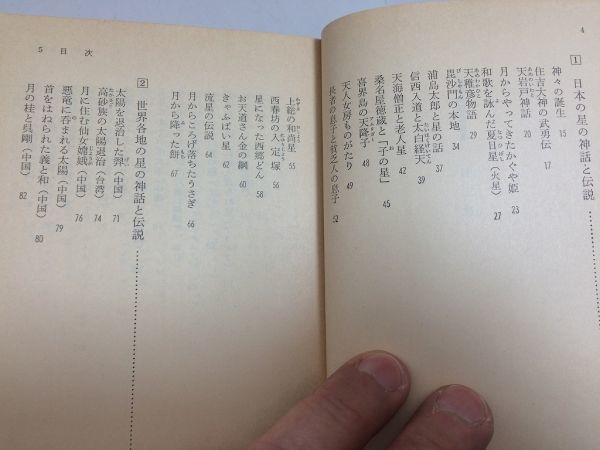 4
1 日本の星の神話と伝説
神々の誕生 15
住吉大神の武勇伝 17
天岩戸神話 20
月からやってきたかぐや姫 23
和歌を詠んだ夏日星(火星) 27
天稚彦物語 29
毘沙門の本地 34
浦島太郎と星の話 37
信西入道と太白経天 39
天海僧正と老人星 42
桑名屋徳蔵と「子の星」 45
喜界島の天降子 48
天人女房ものがたり 49
長者の息子と貧乏人の息子 52
5 目次
上総の和尚星 55
西春坊の入定塚 56
星になった西郷どん 58
お天道さん金の綱 60
きゃふばい星 62
流星の伝説 64
月からころげ落ちたうさぎ 66
月から降った餅 67
2 世界各地の星の神話と伝説
太陽を退治した羿(中国) 71
高砂族の太陽退治(台湾) 74
月に住む仙女嫦娥(中国) 76
悪竜に呑まれる太陽(中国) 79
首をはねられた羲と和(中国) 80
月の桂と呉剛(中国) 82